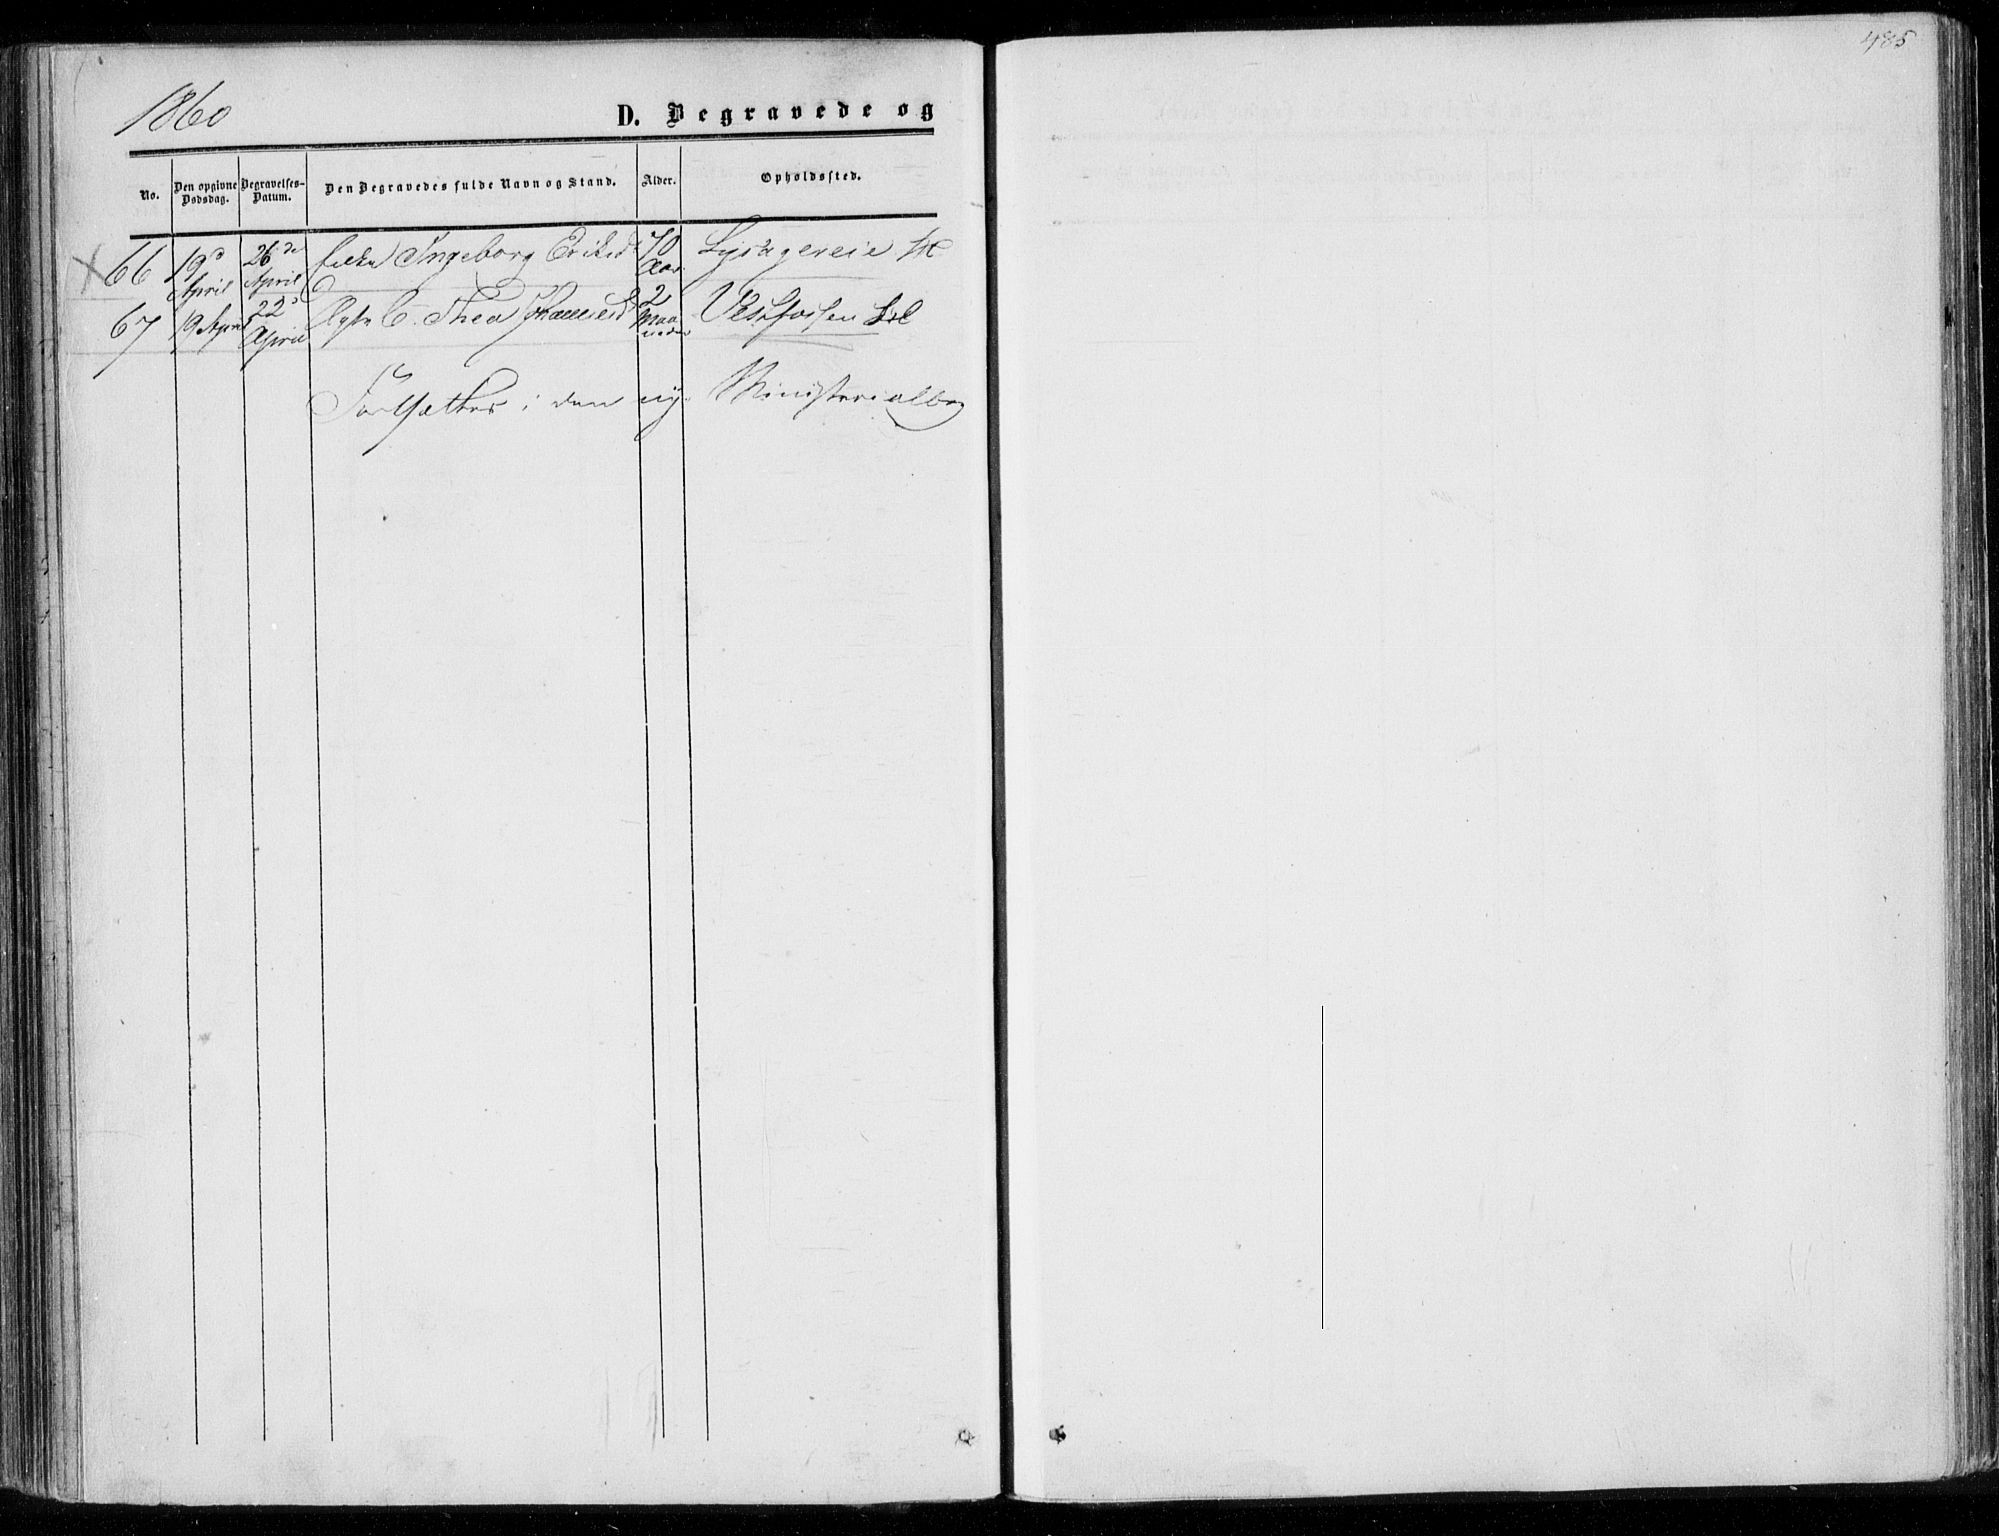 485
1860
D. Begravede og
No. Den opgivne Dødsdag. Begravelses-Datum. Den Begravedes fulde Navn og Stand. Alder. Opholdssted.
66 19d April 26de April Enke Ingeborg Eriksd 70 Aar
67 19 April 22d April Ægte B. Thea 2 Maaneder Vestfossen
Fortsættes i den ny Ministerialbog